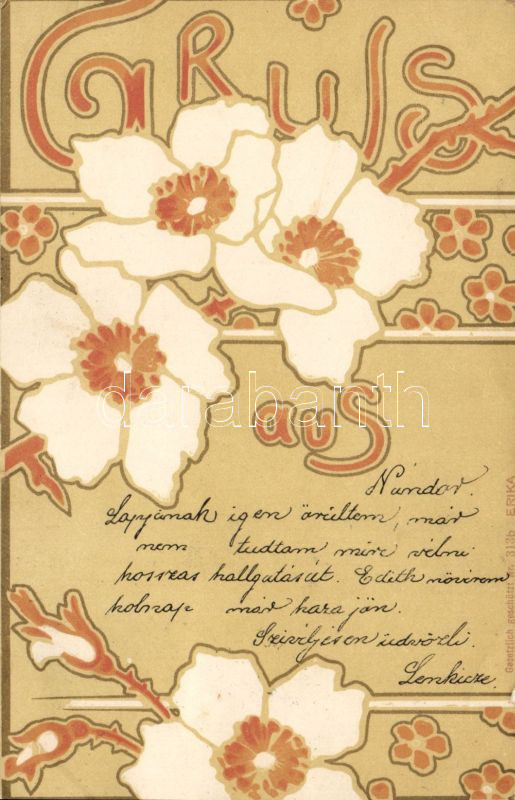 GRUSS
aus
darabanth
Nándor.
Lapjának igen örültem, már
nem tudtam mire vélni
hosszas hallgatását. Edith nővérem
holnap már haza jön.
Szivélyesen üdvözli
Lenkicze.
Gesetzlich geschützt. Nr. 313b ERIKA